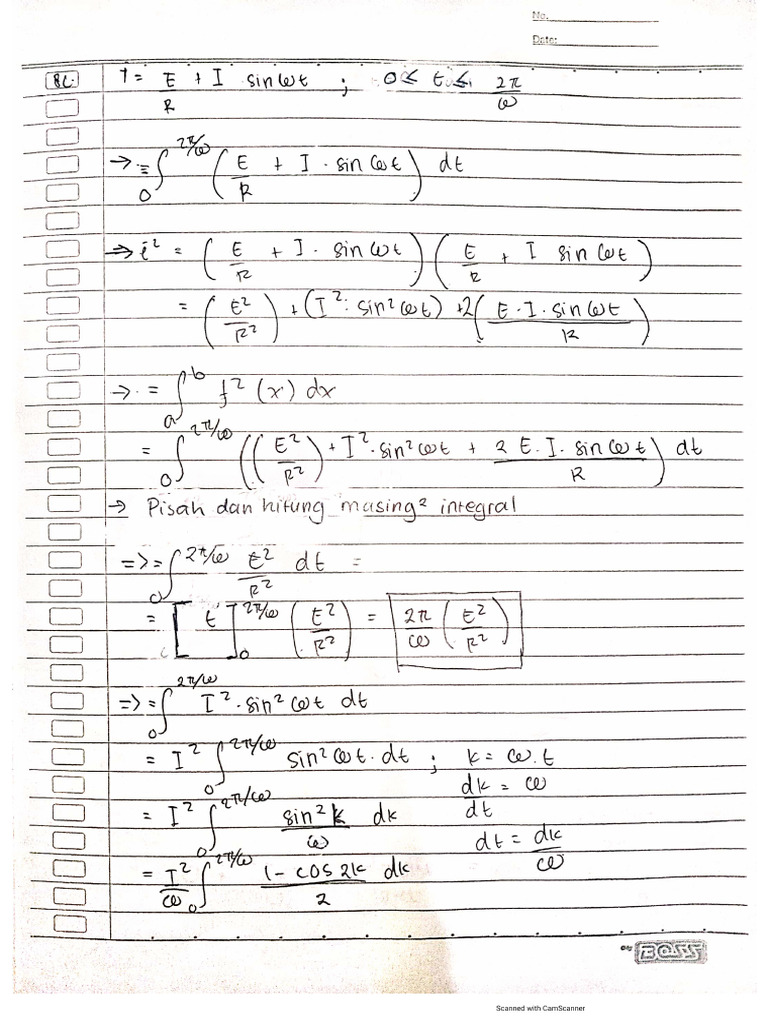 No.
Date:
8C. i = E/R + I sin ωt ; 0 ≤ t ≤ 2π/ω
→ = ∫₀^{2π/ω} (E/R + I · sin ωt) dt
⇒ i² = (E/R + I · sin ωt) (E/R + I sin ωt)
= (E²/R²) + (I² · sin² ωt) + 2(E · I · sin ωt / R)
→ · = ∫ₐᵇ f² (x) dx
= ∫₀^{2π/ω} ((E²/R²) + I² · sin² ωt + 2 E · I · sin ωt / R) dt
→ Pisah dan hitung masing² integral
=> = ∫₀^{2π/ω} E²/R² dt =
= [t]₀^{2π/ω} (E²/R²) = 2π/ω (E²/R²)
=> = ∫₀^{2π/ω} I² · sin² ωt dt
= I² ∫₀^{2π/ω} sin² ωt · dt ; k = ω · t
dk/dt = ω
= I² ∫₀^{2π/ω} sin² k / ω dk
dt = dk/ω
= I²/ω ∫₀^{2π/ω} (1 - cos 2k)/2 dk
BOSS
Scanned with CamScanner